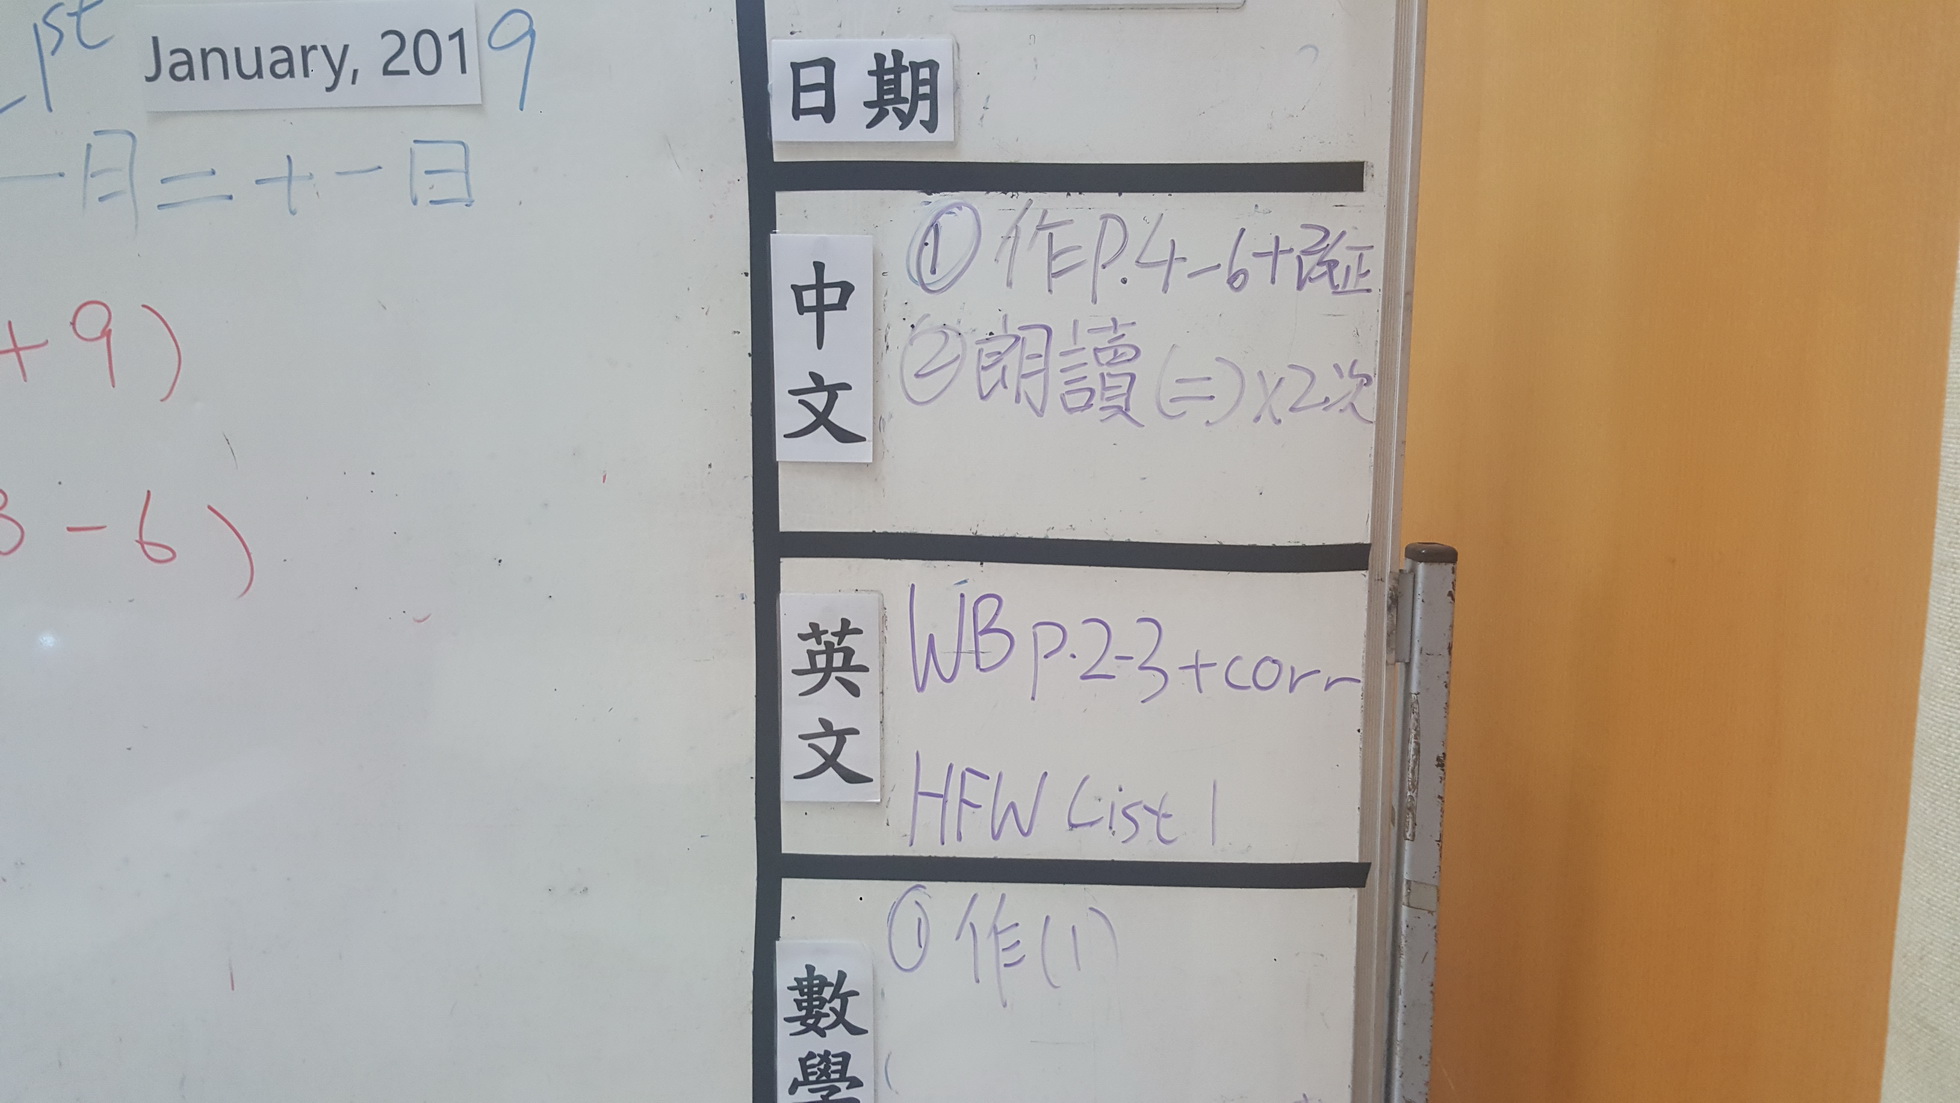 1st January, 2019
一月二十一日
+ 9)
3 - 6)
日期
中文
① 作P.4-6+改正
② 朗讀(二)x2次
英文
WB p.2-3 + corr
HFW List 1
數學
① 作(1)